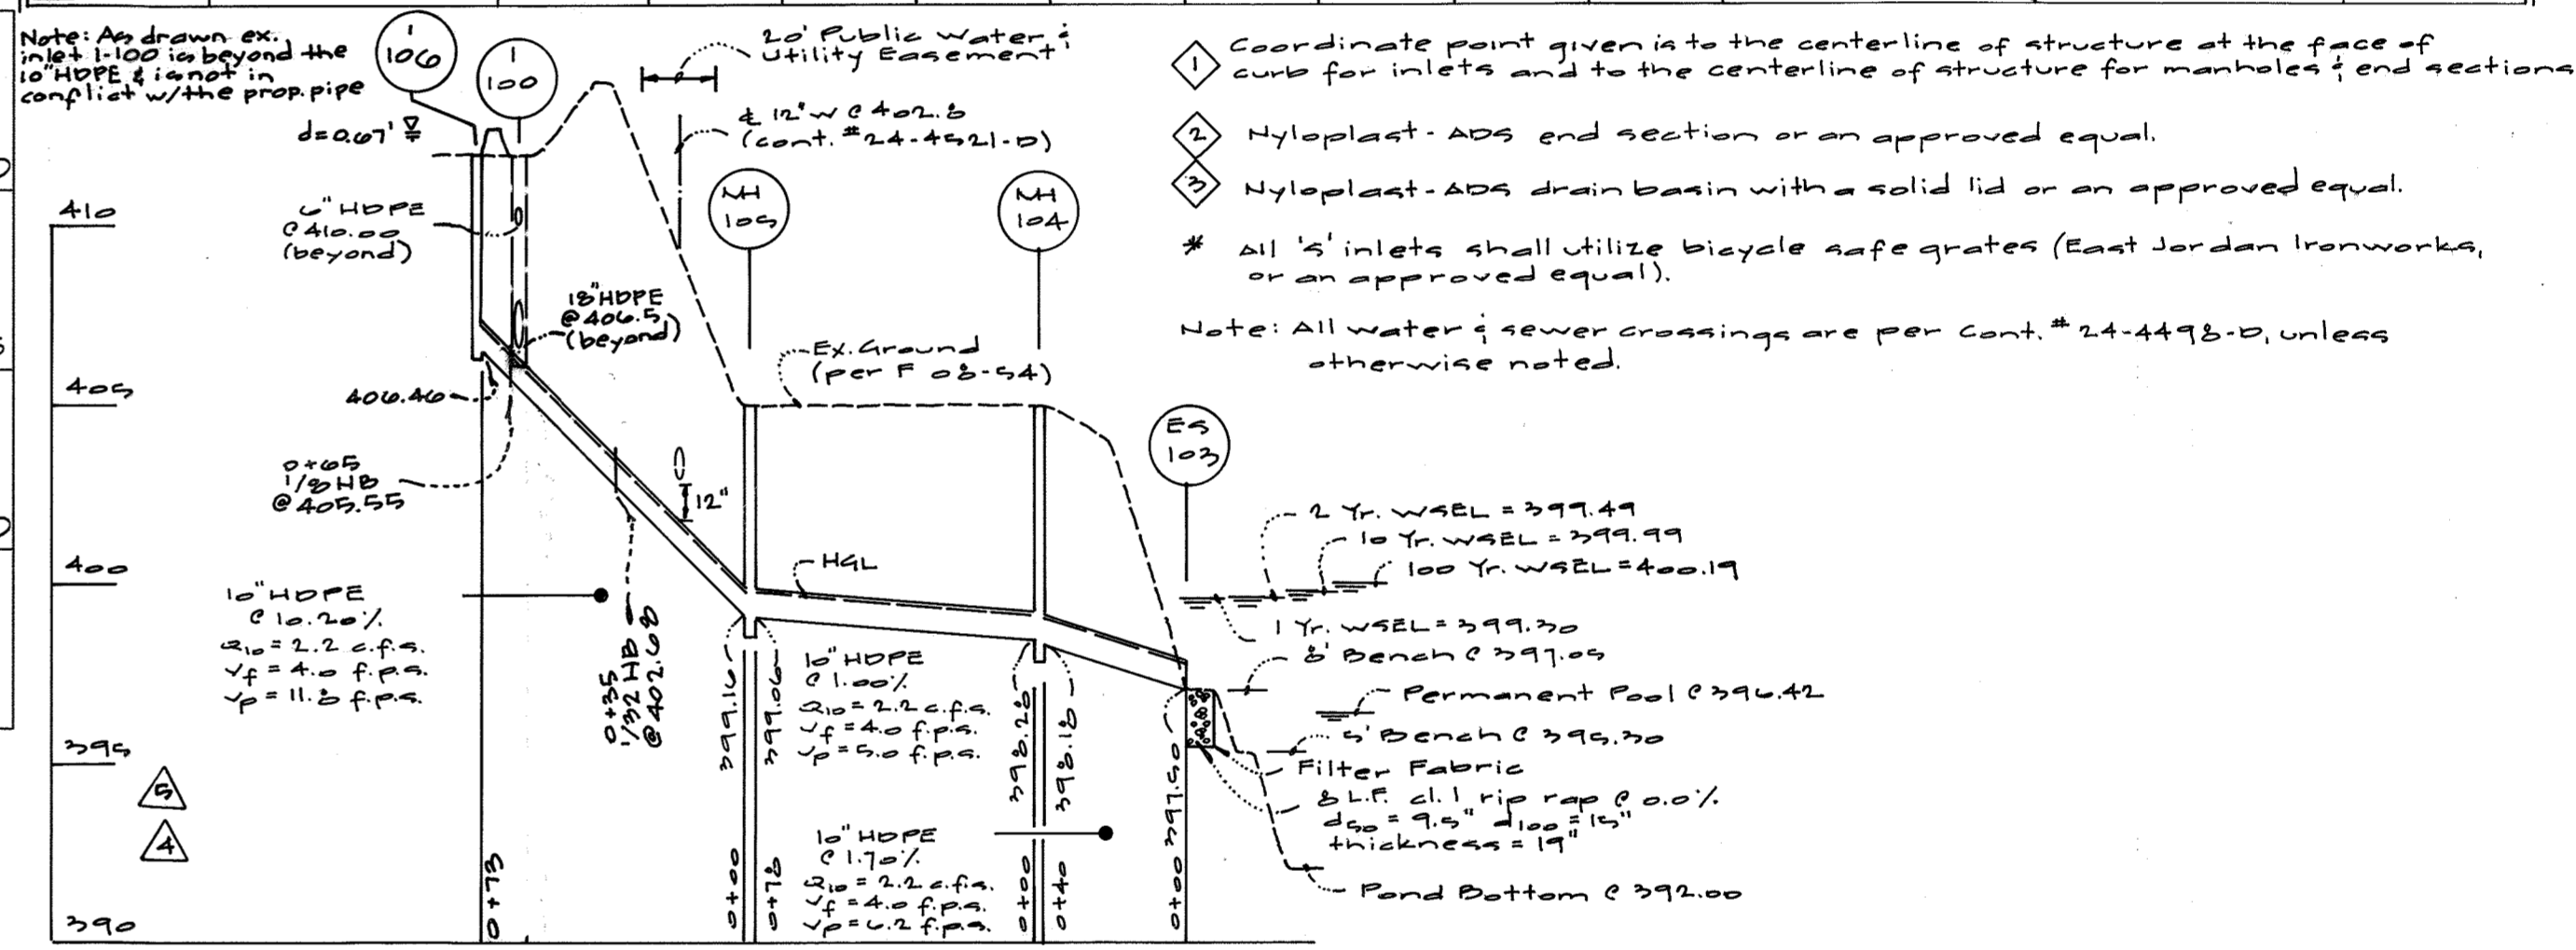 Note: As drawn ex.
inlet I-100 is beyond the
10" HDPE & is not in
conflict w/the prop. pipe
I
106
I
100
20' Public Water &
Utility Easement
d=0.67'
℄ 12" W @ 402.8
(cont. #24-4521-D)
6" HDPE
@ 410.00
(beyond)
18" HDPE
@ 406.5
(beyond)
MH
105
MH
104
Ex. Ground
(per F 08-54)
406.46
0+65
1/8 HB
@ 405.55
12"
ES
103
HGL
10" HDPE
@ 10.20%
Q10 = 2.2 c.f.s.
Vf = 4.0 f.p.s.
Vp = 11.8 f.p.s.
0+35
1/32 HB
@ 402.68
399.16
399.06
10" HDPE
@ 1.00%
Q10 = 2.2 c.f.s.
Vf = 4.0 f.p.s.
Vp = 5.0 f.p.s.
398.28
398.18
10" HDPE
@ 1.70%
Q10 = 2.2 c.f.s.
Vf = 4.0 f.p.s.
Vp = 6.2 f.p.s.
397.50
0+73
0+00
0+78
0+00
0+40
0+00
410
405
400
395
390
5
4
1 Coordinate point given is to the centerline of structure at the face of
curb for inlets and to the centerline of structure for manholes & end sections
2 Nyloplast - ADS end section or an approved equal.
3 Nyloplast - ADS drain basin with a solid lid or an approved equal.
* All 'S' inlets shall utilize bicycle safe grates (East Jordan Ironworks,
or an approved equal).
Note: All water & sewer crossings are per Cont. # 24-4498-D, unless
otherwise noted.
2 Yr. WSEL = 399.49
10 Yr. WSEL = 399.99
100 Yr. WSEL = 400.19
1 Yr. WSEL = 399.30
8' Bench @ 397.05
Permanent Pool @ 396.42
5' Bench @ 395.30
Filter Fabric
8 L.F. cl. I rip rap @ 0.0%
d50 = 9.5" d100 = 15"
thickness = 19"
Pond Bottom @ 392.00